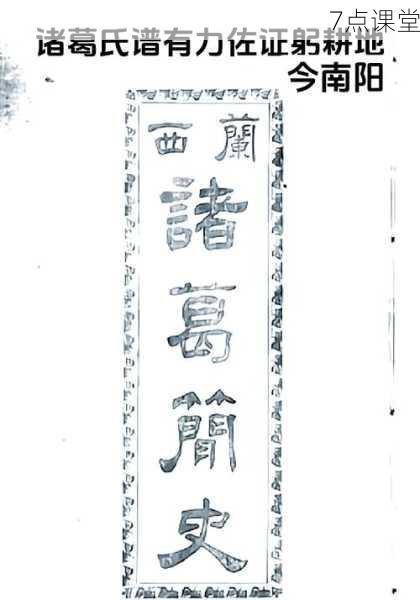 7点课堂
诸葛氏谱有力佐证躬耕地
今南阳
蘭西
諸葛簡史